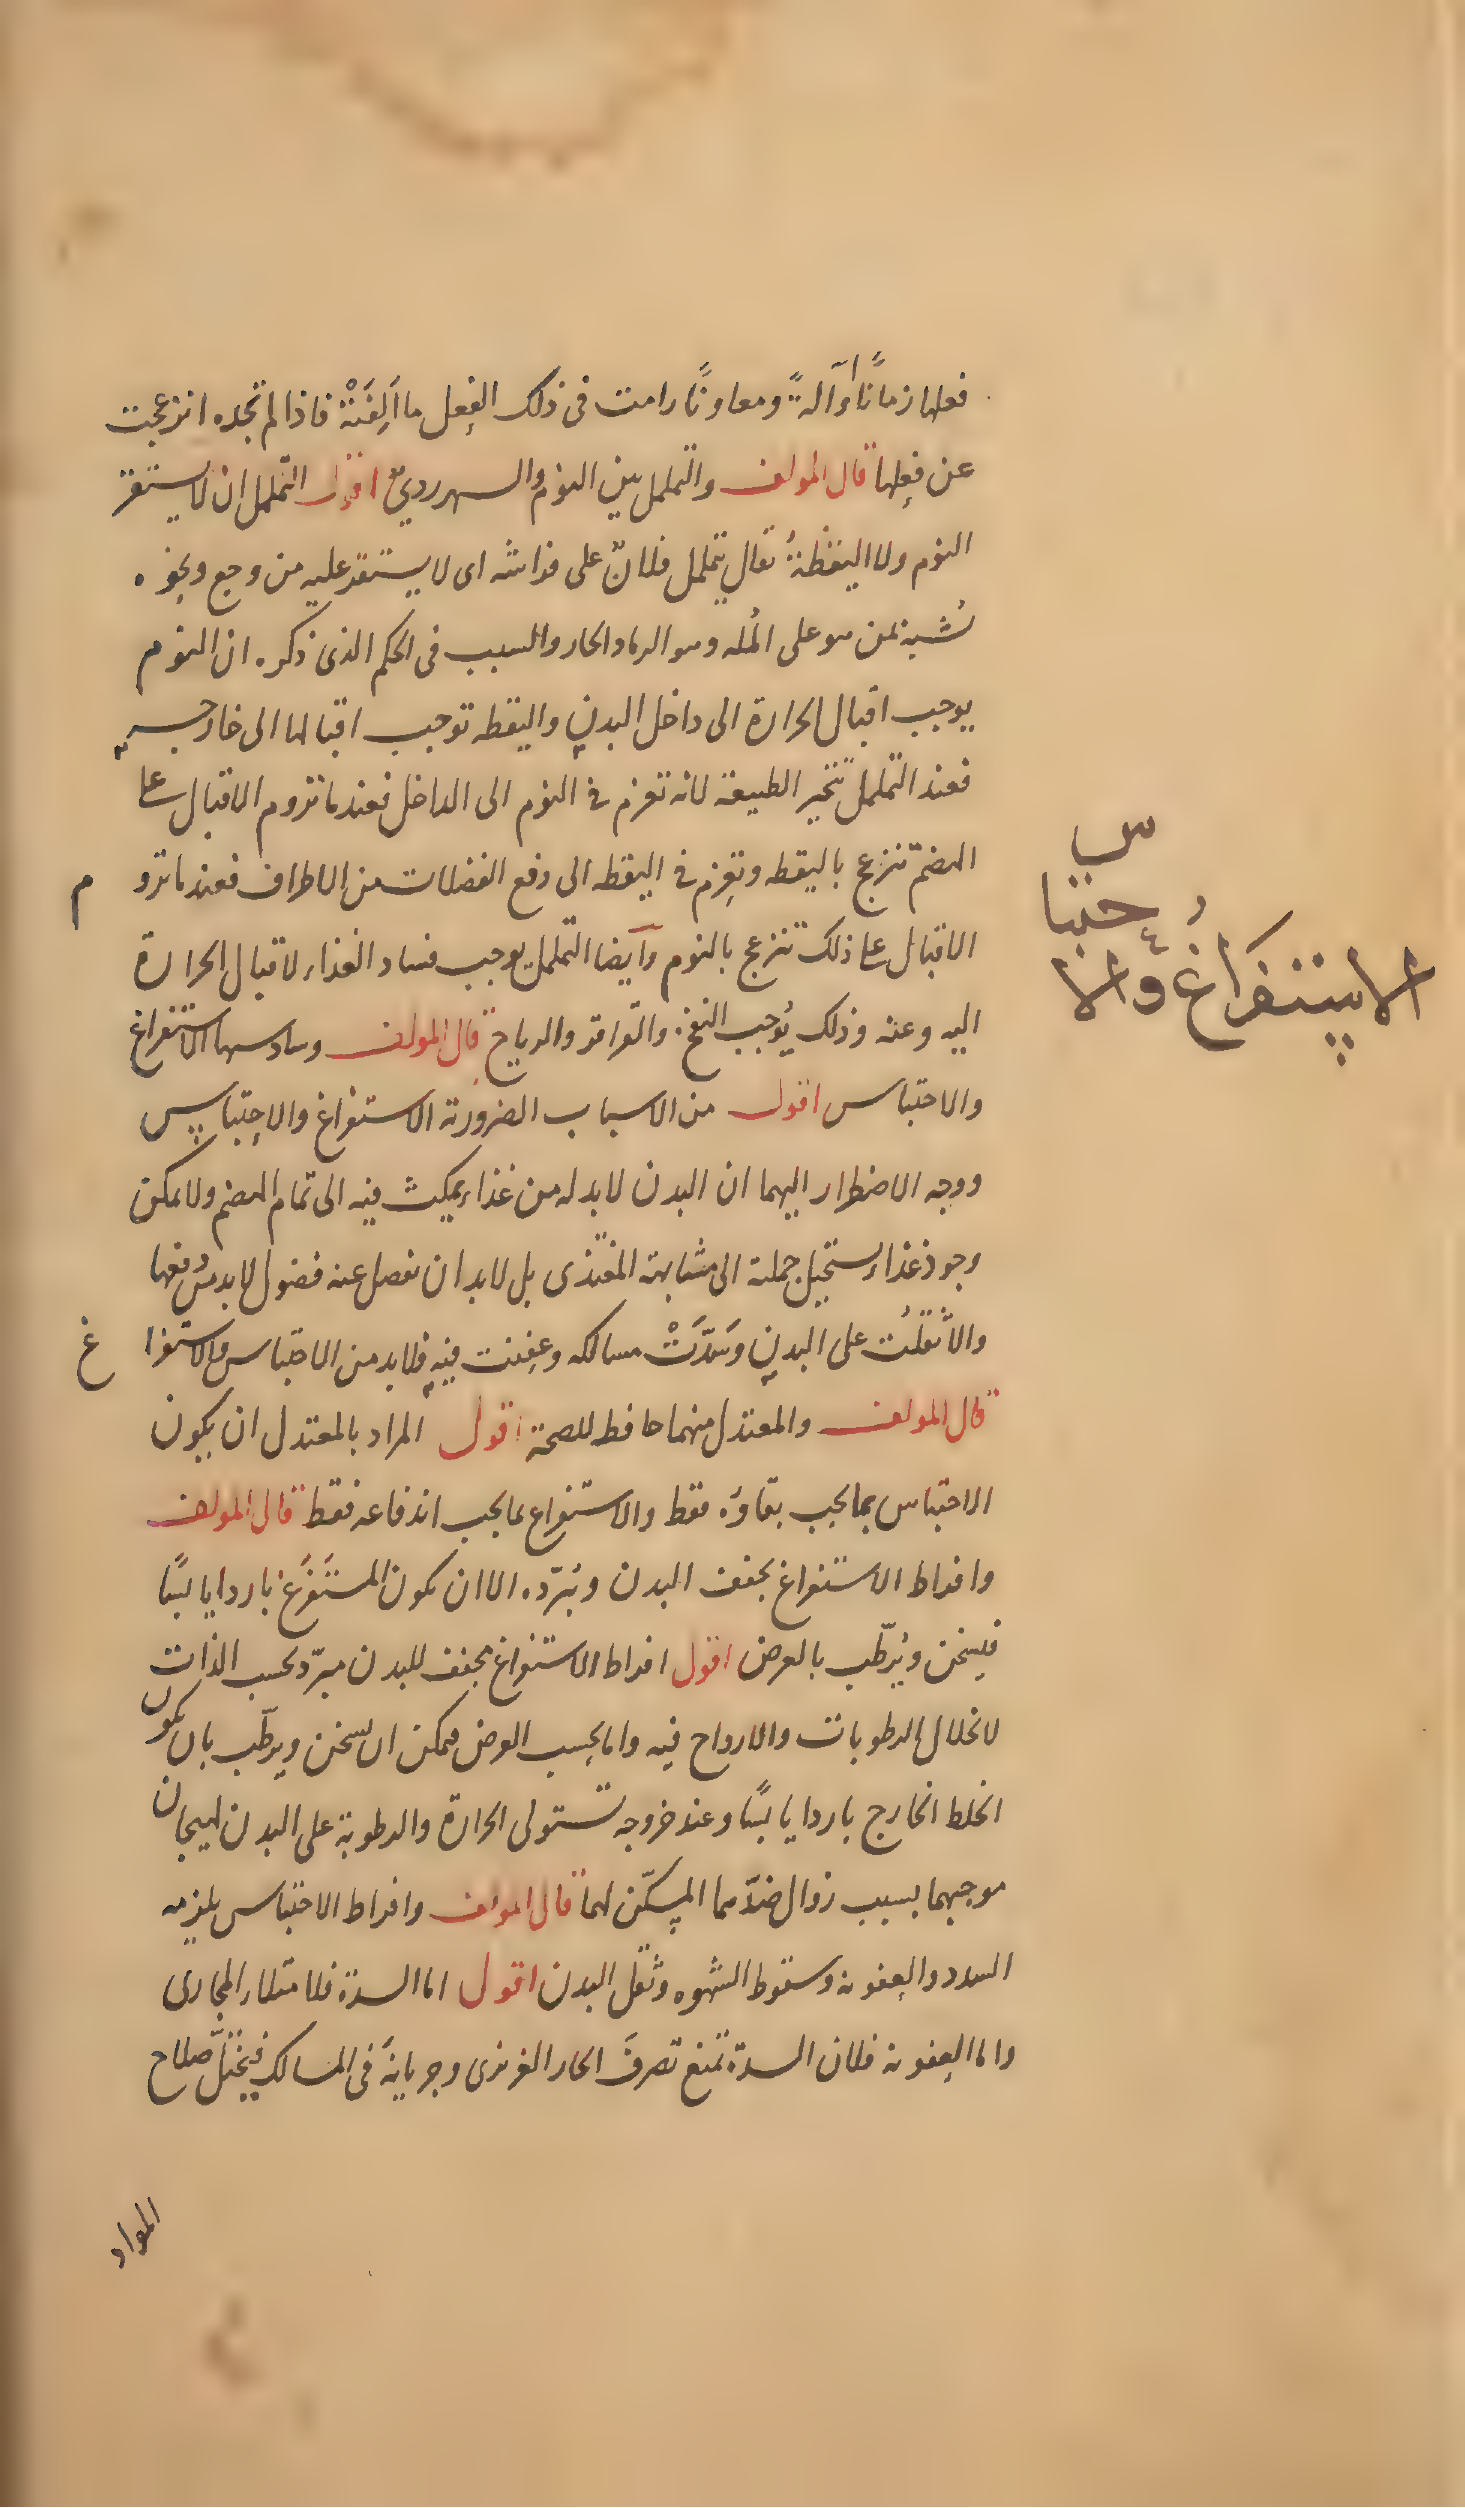 فعلها زمانًا وآلةً ومعاونًا رامت فى ذلك الفِعل ما اَلِفَتْهُ فاذا لم تجده انزعجت
عن فِعلها قال المولف والتململ بين النوم والسهر ردىٌ اقول التململ ان لا يستقر
النوم ولا اليقظةُ يقال يتململ فلانٌ على فراشه اى لا يستقر عليه من وجع ونحوه
شُبه بمن هو على المُله وهو الرماد الحار والسبب فى الحكم الذى ذكره ان النوم
يوجب اقبال الحرارة الى داخل البدن واليقظه توجب اقبالها الى خارجه
فعند التململ تتحير الطبيعة لانه تعزم فى النوم الى الداخل فعندما تروم الاقبال على
الهضم تنزعج باليقظه وتعزم فى اليقظه الى دفع الفضلات من الاطراف فعندما تروم
الاقبال على ذلك تنزعج بالنوم وأيضا التململ يوجب فساد الغذاء لاقبال الحرارة
اليه وعنه وذلك يُوجب النفخ والقراقر والرياح قال المولف وسادسها الاستفراغ
والاحتباس اقول من الاسباب الضرورية الاستفراغ والاحتباس
ووجه الاضطرار اليهما ان البدن لا بد له من غذاء يمكث فيه الى تمام الهضم ولا يمكن
وجود غذاء يستحيل جملته الى مشابهة المغتذى بل لا بد ان يفصل عنه فضول لا بد من دفعها
والا ثقلَت على البدن وسَدَّتْ مسالكه وعفِنت فيه فلا بد من الاحتباس والاستفراغ
قال المولف والمعتدل منهما حافظ للصحة اقول المراد بالمعتدل ان يكون
الاحتباس بما يجب بقاؤه فقط والاستفراغ بما يجب اندفاعه فقط قال المولف
وافراط الاستفراغ يجفف البدن ويُبرّده الا ان يكون المستَفرَغ باردا يابسًا
فيسخن ويُرطّب بالعرض اقول افراط الاستفراغ مجفف للبدن مبرّد بحسب الذات
لانحلال الرطوبات والارواح فيه واما بحسب العرض فيمكن ان يسخن ويرطّب بان يكون
الخلط الخارج باردا يابسًا وعند خروجه تستولى الحرارة والرطوبة على البدن لهيجان
موجبهما بسبب زوال ضدّهما المسكّن لهما قال المولف وافراط الاحتباس يلزمه
السدد والعفونه وسقوط الشهوه وثقل البدن اقول اما السدة فلامتلاء المجارى
واما العفونه فلان السدة تمنع تصرفَ الحار الغريزى وجريانهَ فى المسالك فيختلّ صلاح
المواد
الاستفرَاغُ والاحتباس